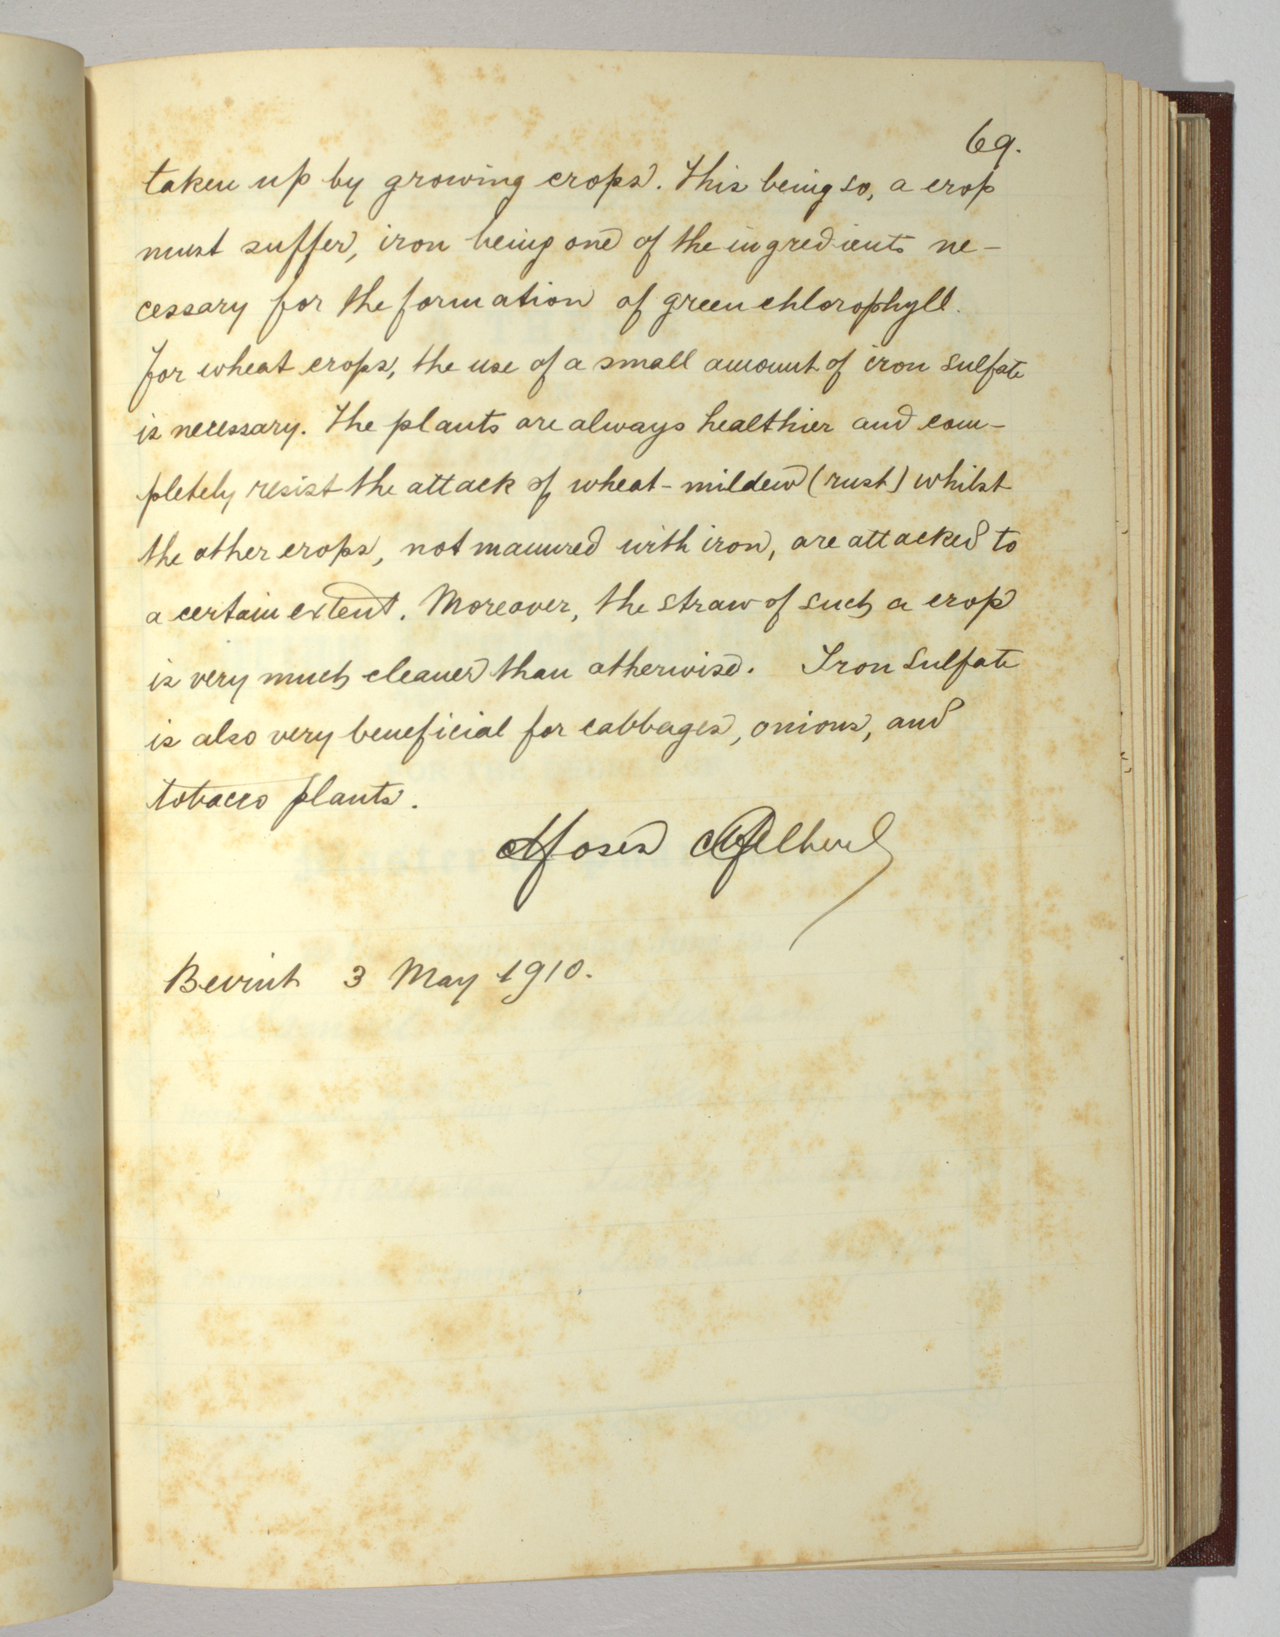 69.
taken up by growing crops. This being so, a crop
must suffer, iron being one of the ingredients ne-
cessary for the formation of green chlorophyll.
For wheat crops, the use of a small amount of iron sulfate
is necessary. The plants are always healthier and com-
pletely resist the attack of wheat-mildew (rust) whilst
the other crops, not manured with iron, are attacked to
a certain extent. Moreover, the straw of such a crop
is very much cleaner than otherwise. Iron sulfate
is also very beneficial for cabbages, onions, and
tobacco plants.
Moses
3 May 1910.